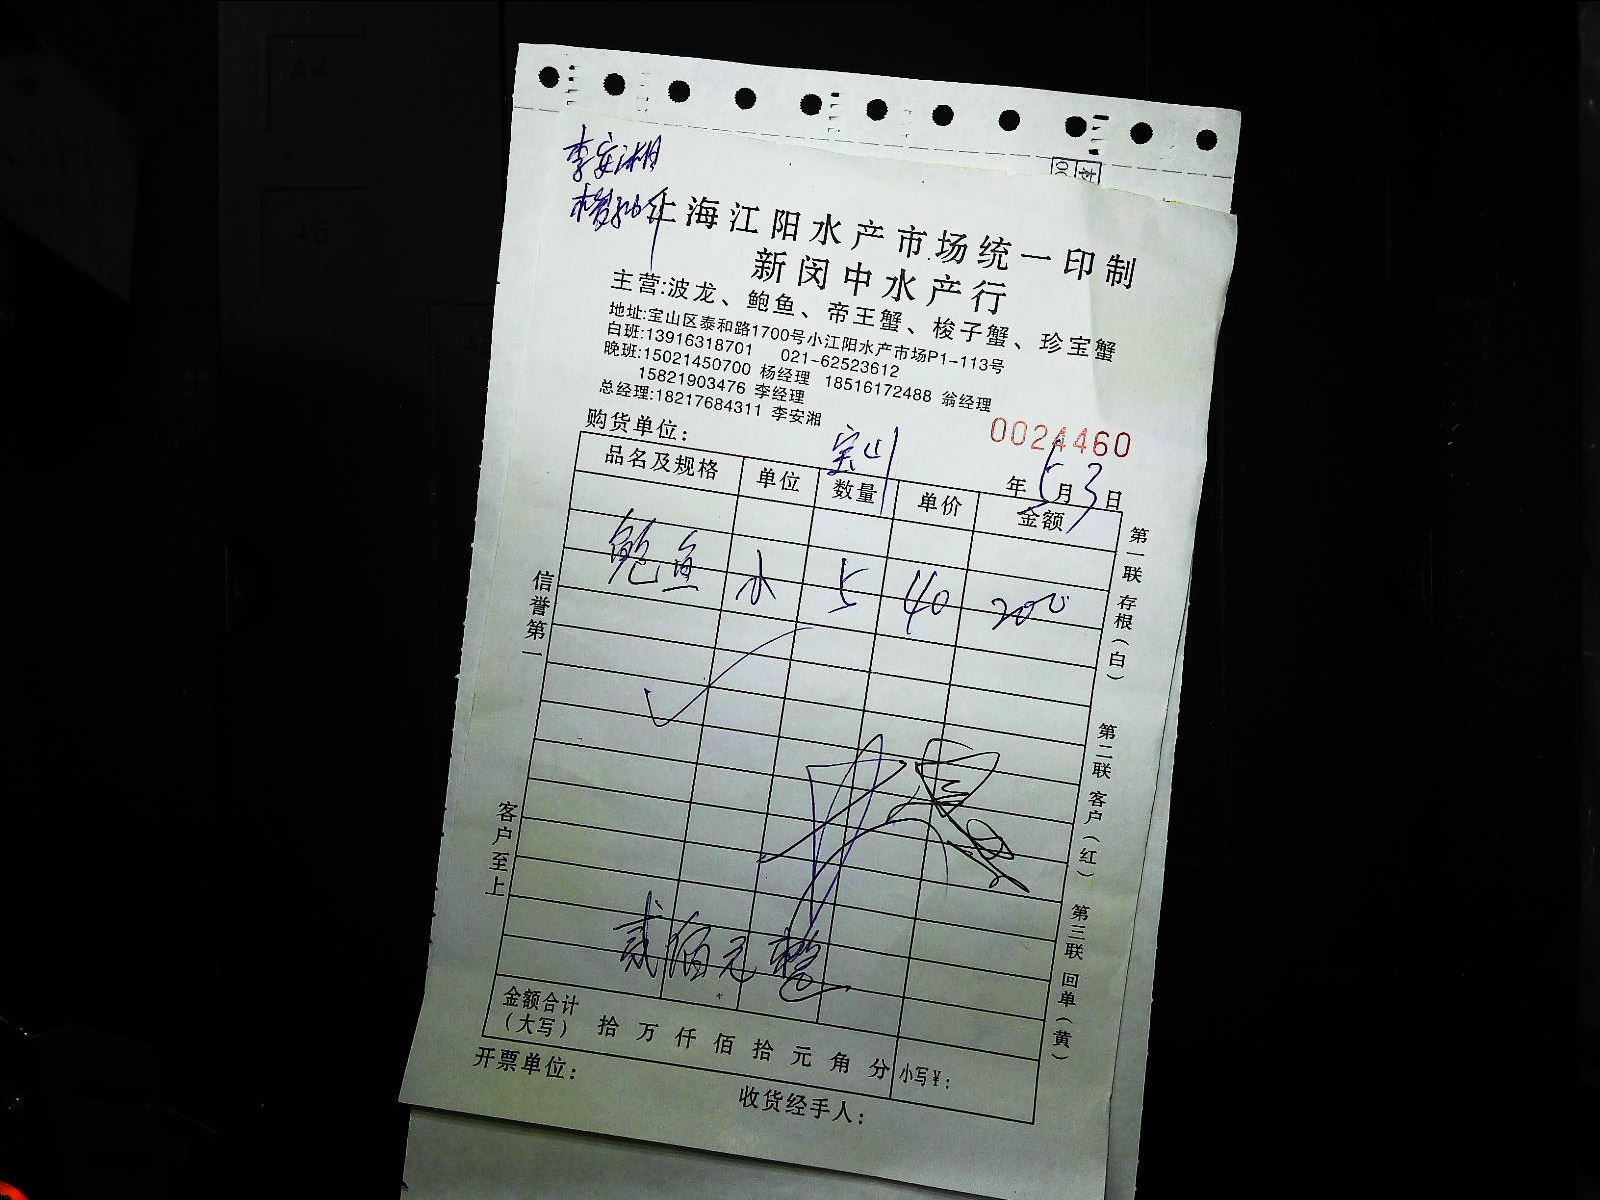 李安湘
上海江阳水产市场统一印制
新闵中水产行
主营:波龙、鲍鱼、帝王蟹、梭子蟹、珍宝蟹
地址:宝山区泰和路1700号小江阳水产市场P1-113号
白班:13916318701 021-62523612
晚班:15021450700 杨经理 18516172488 翁经理
15821903476 李经理
总经理:18217684311 李安湘
0024460
购货单位: 宝山 年 5月3日
品名及规格 单位 数量 单价 金额
鲍鱼 小 5 40 200
贰佰元整
金额合计
(大写) 拾 万 仟 佰 拾 元 角 分 小写¥:
开票单位:
收货经手人:
信誉第一
客户至上
第一联 存根(白)
第二联 客户(红)
第三联 回单(黄)